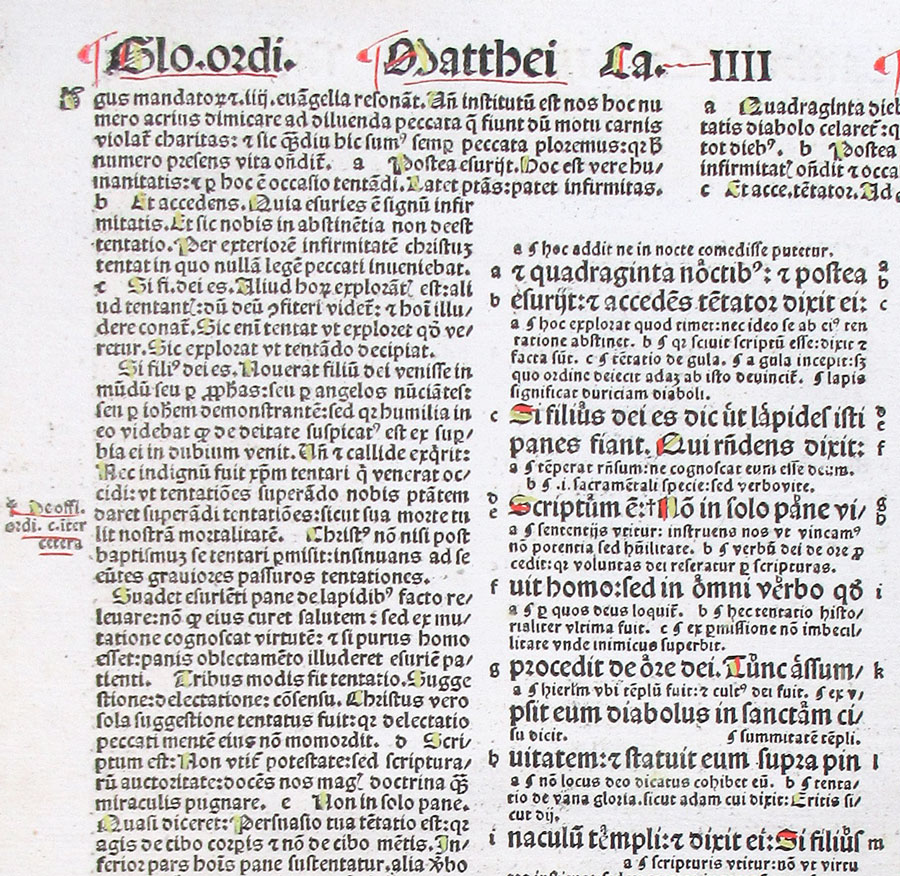 Glo. ordi. Matthei Ca. IIII
gus mandatoꝝ ⁊.iiij. euãgelia resonãt. Añ institutũ est nos hoc nu
mero acrius dimicare ad diluenda peccata q̃ fiunt dũ motu carnis
violat᷑ charitas: ⁊ sic q̃diu hic sumꝰ semꝑ peccata ploremus: qꝛ
numero presens vita oñdit᷑. a Postea esurijt. Hoc est vere hu/
manitatis: ⁊ ꝑ hoc ẽ occasio tentãdi. Latet ptãs: patet infirmitas.
b Et accedens. Quia esuries ẽ signũ infir
mitatis. Et sic nobis in abstinẽtia non deest
tentatio. Per exteriorẽ infirmitatẽ christuȝ
tentat in quo nullã legẽ peccati inueniebat.
c Si fi. dei es. Aliud hoꝝ explorãt᷑ est: ali
ud tentant᷑: dũ deũ ꝯfiteri videt᷑: ⁊ hoĩ illu/
dere conat᷑. Sic enĩ tentat vt exploret: q̃ ve/
retur. Sic explorat vt tentãdo decipiat.
Si filiꝰ dei es. Nouerat filiũ dei venisse in
mũdũ seu ꝑ ꝓphas: seu ꝑ angelos nũciãtes:
seu ꝑ iohem demonstrantẽ: sed qꝛ humilia in
eo videbat ꝙ de deitate suspicatꝰ est ex suꝑ/
bia ei in dubium venit. Añ ⁊ callide exq̃rit:
Nec indignũ fuit xp̃m tentari q̃ venerat oc/
cidi: vt tentatiões superãdo nobis ptãtem
daret superãdi tentatiões: sicut sua morte tu
lit nostrã mortalitatẽ. Christꝰ nõ nisi post
baptismuȝ se tentari ꝑmisit: insinuans ad se
eũtes grauiores passuros tentationes.
Suadet esuriẽti pane de lapidibꝰ facto re/
leuare: nõ ꝙ eius curet salutem: sed ex mu/
tatione cognoscat virtutẽ: ⁊ si purus homo
esset: panis oblectamẽto illuderet esuriẽ pa/
tienti. Tribus modis fit tentatio. Sugge
stione: delectatione: cõsensu. Christus vero
sola suggestione tentatus fuit: qꝛ delectatio
peccati mentẽ eius nõ momordit. d Scri/
ptum est: Non vtit᷑ potestate: sed scriptura/
rũ auctoritate: docẽs nos mag᷑ doctrina q̃ȝ
miraculis pugnare. e Non in solo pane.
Quasi diceret: Persuasio tua tẽtatio est: qꝛ
agis de cibo corpis ⁊ nõ de cibo mẽtis. In/
ferior pars hoĩs pane sustentatur, alia ꝟbo
De offi.
ordi. c. iter
cetera
a Quadraginta dieb
tatis diabolo celaret᷑: q
tot diebꝰ. b Postea
infirmitat᷑ oñdit ⁊ occa
c Et acce. tẽtator. Ad
a ¶ hoc addit ne in nocte comedisse putetur.
a ⁊ quadraginta noctibꝰ: ⁊ postea a b
b esurijt: ⁊ accedẽs tẽtator dixit ei: c
a ¶ hoc explorat quod timet: nec ideo se ab ciꝰ ten
ratione abstinet. b ¶ qꝛ sciuit scriptũ esse: dixit ⁊
facta sũt. c ¶ tẽtatio de gula. ¶ a gula incepit: sȝ
quo ordine deiecit adaȝ ab isto deuincit᷑. ¶ lapis
significat duriciam diaboli.
c Si filius dei es dic vt lapides isti d e
panes fiant. Qui rñdens dixit: f
a ¶ tẽperat rñsum: ne cognoscat eum esse deum.
b ¶ .i. sacramẽtali specie: sed verbo vite.
d e Scriptũm ẽ: † Nõ in solo pane vi/ g h
a ¶ sentencijs vtitur: instruens nos vt vincamꝰ
nõ potentia sed hũilitate. b ¶ verbũ dei de ore ꝓ
cedit: qꝛ voluntas dei reseratur ꝑ scripturas.
f uit homo: sed in omni verbo qð i
a ¶ ꝑ quos deus loquit᷑. b ¶ hec tentatio histo/
rialiter vltima fuit. c ¶ ex ꝑmissione nõ imbecil/
litate vnde inimicus superbit.
g procedit de ore dei. Tũnc assum/ k
a ¶ hierlm̃ vbi tẽplũ fuit: ⁊ cultꝰ dei fuit. ¶ ex v/
psit eum diabolus in sanctam ci/
su dicit. ¶ summitatẽ tẽpli.
h uitatem: ⁊ statuit eum supra pin l
a ¶ nõ locus deo dicatus cohibet eũ. b ¶ tenta/
tio de vana gloria. sicut adam cui dixit: Eritis si/
cut dij.
i naculũ templi: ⁊ dixit ei: Si filius m
a ¶ scripturis vtitur: nõ vt virtu